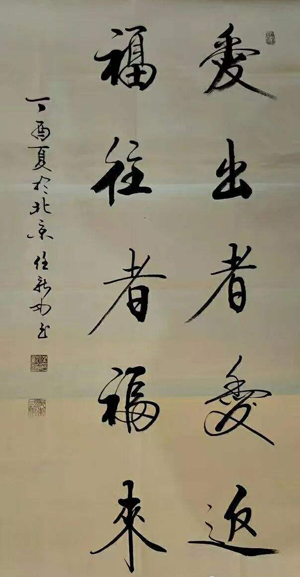 愛出者愛返
福往者福來
丁酉夏於北京任